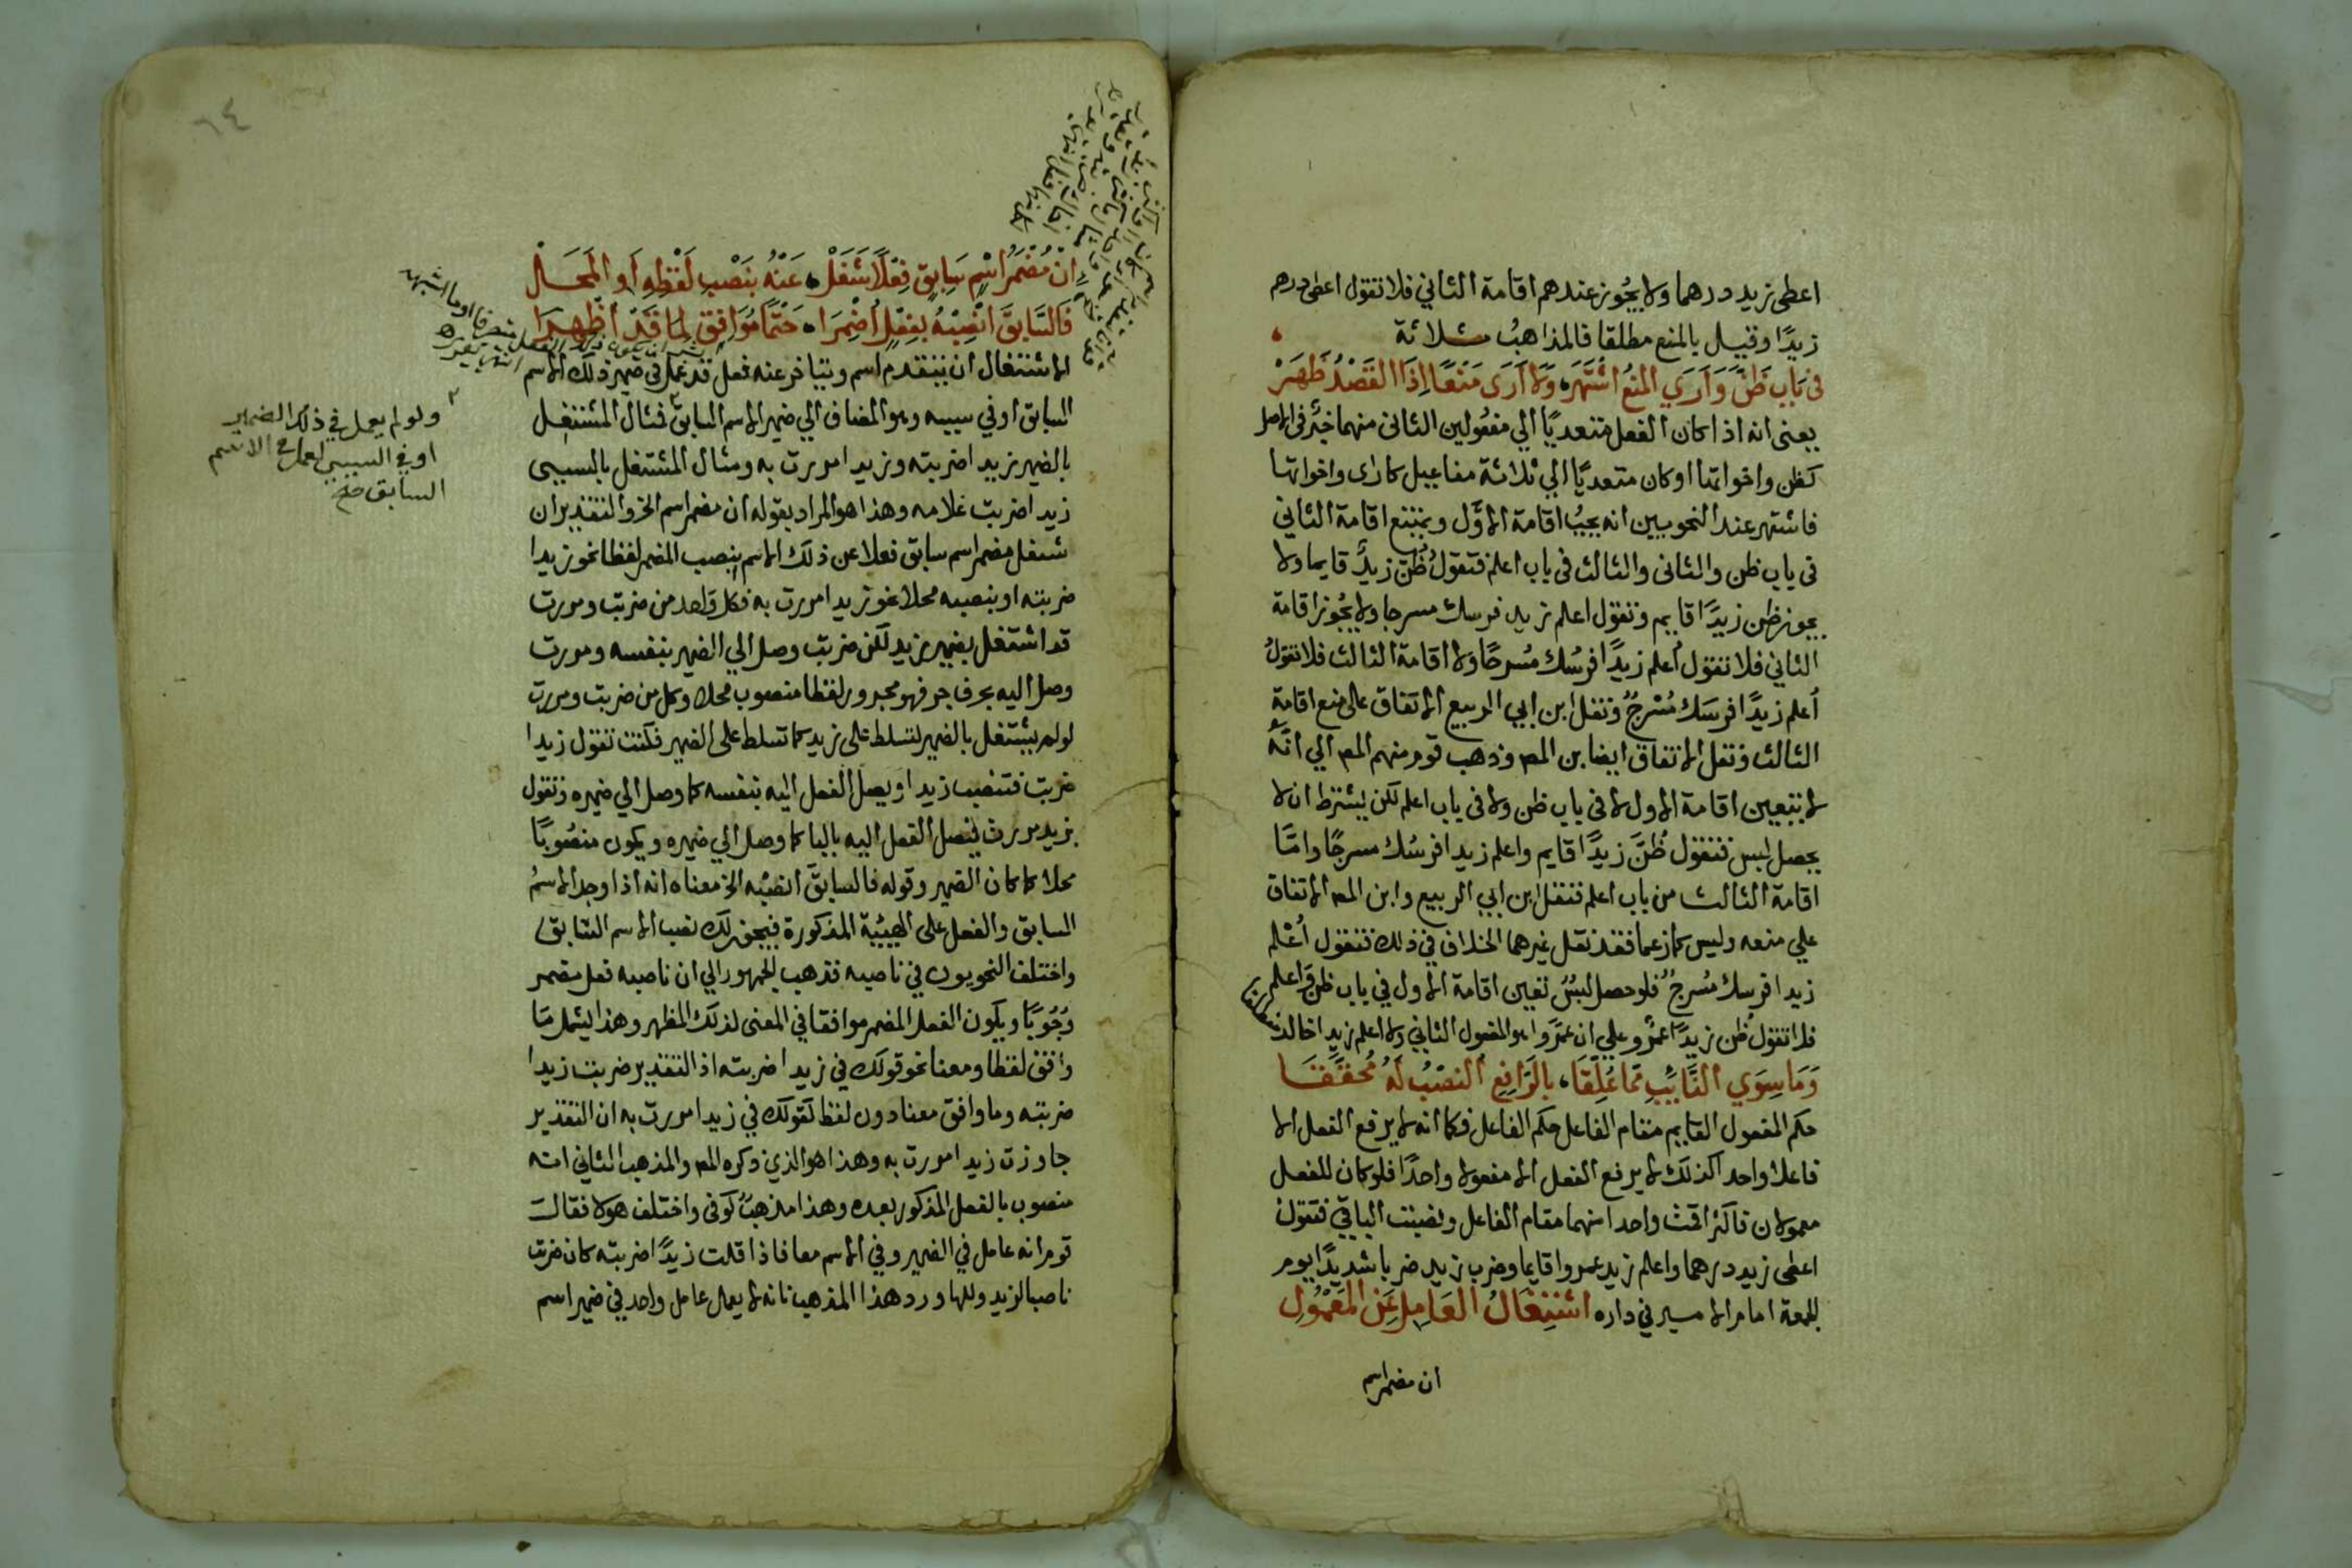 اعطى زيد درهما ولا يجوز عندهم اقامة الثاني فلا تقول اعطى درهم
زيدًا وقيل بالمنع مطلقا فالمذاهبُ ثلاثة
في بَابِ ظَنَّ وَاَرَي المنعُ اشْتَهَرَ وَلَا اَرَى مَنْعًا اِذَا القَصْدُ ظَهَرْ
يعنى انه اذا كان الفعل متعديًا الي مفعُولين الثانى منهما خبَر فى الاصل
كظن واخواتها او كان متعديًا الي ثلاثة مفاعيل كارى واخواتها
فاشتهر عند النحويين انه يجبُ اقامة الاوَّل ويمتنع اقامة الثاني
فى باب ظن والثانى والثالث فى باب اعلم فتقولُ ظُنّ زيدٌ قايما ولا
يجوز ظن زيدًا قايم وتقول اعلم زيد فرسك مسرجا ولا يجُوز اقامة
الثاني فلا تقول اُعلم زيدًا فرسُك مُسرجًا ولا اقامة الثالث فلا تقولُ
اُعلم زيدًا فرسَك مُسْرجٌ ونقل ابن ابي الربيع الاتفاق على منع اقامة
الثالث ونقل الاتفاق ايضا بن المص وذهب قوم منهم المص الي انّهُ
لا يتعين اقامة الاول لا فى باب ظن ولا فى باب اعلم لكن يشترط ان لا
يحصل لبس فتقول ظُنَّ زيدًا قايم واعلم زيدا فرسُك مسرجًا وامّا
اقامة الثالث من باب اعلم فنقل ابن ابي الربيع وابن المص الاتفاق
علي منعه وليس كما زعما فقد نقل غيرهما الخلاف في ذلك فتقول اُعْلم
زيدا فرسك مُسرجٌ فلو حصل لبسٌ تعين اقامة الاول في باب ظن واعلم
فلا تقول ظُن زيدًا عمرٌو علي ان عمرٌو هو المفعول الثاني ولا اعلم زيدا خالد
وَمَا سِوَي النَّايِبِ مِمّا عُلِّقَا بالرَافِعِ النصْبُ لَهُ مُحقّقَا
حكم المفعول القايم مقام الفاعل حكم الفاعل فكما انه لا يرفع الفعل الا
فاعلا واحدا كذلك لا يرفع الفعل الا مفعولا واحدًا فلو كان للفعل
معمولان فاكثر اقمت واحدا منهما مقام الفاعل ونصبت الباقي فتقول
اعطى زيد درهما واعلم زيد عمروا قايما وضرب زيد ضربا شديدًا يوم
الجمعة امام الامير في داره اشتِغَالُ العَامِلِ عَنِ المَعْمُولِ
ان مضمر اسم
٦٤
اِنْ مُضْمَرُ اسْمٍ سَابِقٍ فِعْلًا شَغَلْ عَنْهُ بنَصْبِ لَفْظِهِ اَو المَحَلْ
فَالسَّابِقَ انْصِبْهُ بفِعْلٍ اُضْمِرَا حَتْمًا مُوَافِقٍ لِمَا قَدْ اُظْهِرَا
الاشتغال ان يتقدم اسم ويتاخر عنه فعل قد عمل فى ضمير ذلك الاسم
السابق او في سببيه وهو المضاف الي ضمير الاسم السابق فمثال المشتغل
بالضمير زيدا ضربته وزيدا مررت به ومثال المشتغل بالسببى
زيدا ضربت غلامه وهذا هو المراد بقوله ان مضمر اسم الخ والتقدير ان
شغل مضمر اسم سابق فعلا عن ذلك الاسم بنصب المضمر لفظا نحو زيدا
ضربته او بنصبه محلا نحو زيدا مررت به فكل واحد من ضربت ومررت
قد اشتغل بضمير زيد لكن ضربت وصل الي الضمير بنفسه ومررت
وصل اليه بحرف جر فهو مجرور لفظا منصوب محلا وكل من ضربت ومررت
لو لم يشتغل بالضمير لتسلط على زيد كما تسلط على الضمير فكنت تقول زيدا
ضربت فتنصب زيدا ويصل الفعل اليه بنفسه كما وصل الي ضميره وتقول
بزيد مررت فيصل الفعل اليه بالبا كما وصل الي ضميره ويكون منصُوبًا
محلا كما كان الضمير وقوله فالسابقَ انصبْه الخ معناه انه اذا وجد الاسمُ
السابق والفعل على الهيئة المذكورة فيجوز لك نصب الاسم السّابق
واختلف النحويون في ناصبه فذهب الجمهور الي ان ناصبه فعل مضمر
وُجُوبًا ويكون الفعل المضمر موافقا في المعنى لذلك المظهر وهذا يشمل مَا
وافق لفظا ومعنا نحو قولك في زيدا ضربته اذ التقدير ضربت زيدا
ضربته وما وافق معنا دون لفظ لقولك في زيدا مررت به ان التقدير
جاوزت زيدا مررت به وهذا هو الذي ذكره المص والمذهب الثاني انه
منصوب بالفعل المذكور بعده وهذا مذهبٌ كوفى واختلف هولا فقالت
قوم انه عامل في الضمير وفي الاسم معا فاذا قلت زيدًا ضربته كان ضربت
ناصبا لزيد وللها ورد هذا المذهب بانه لا يعمل عامل واحد في ضمير اسم
ولو لم يعمل في ذلك الضمير
او في السببي لعمل في الاسم
السابق صح